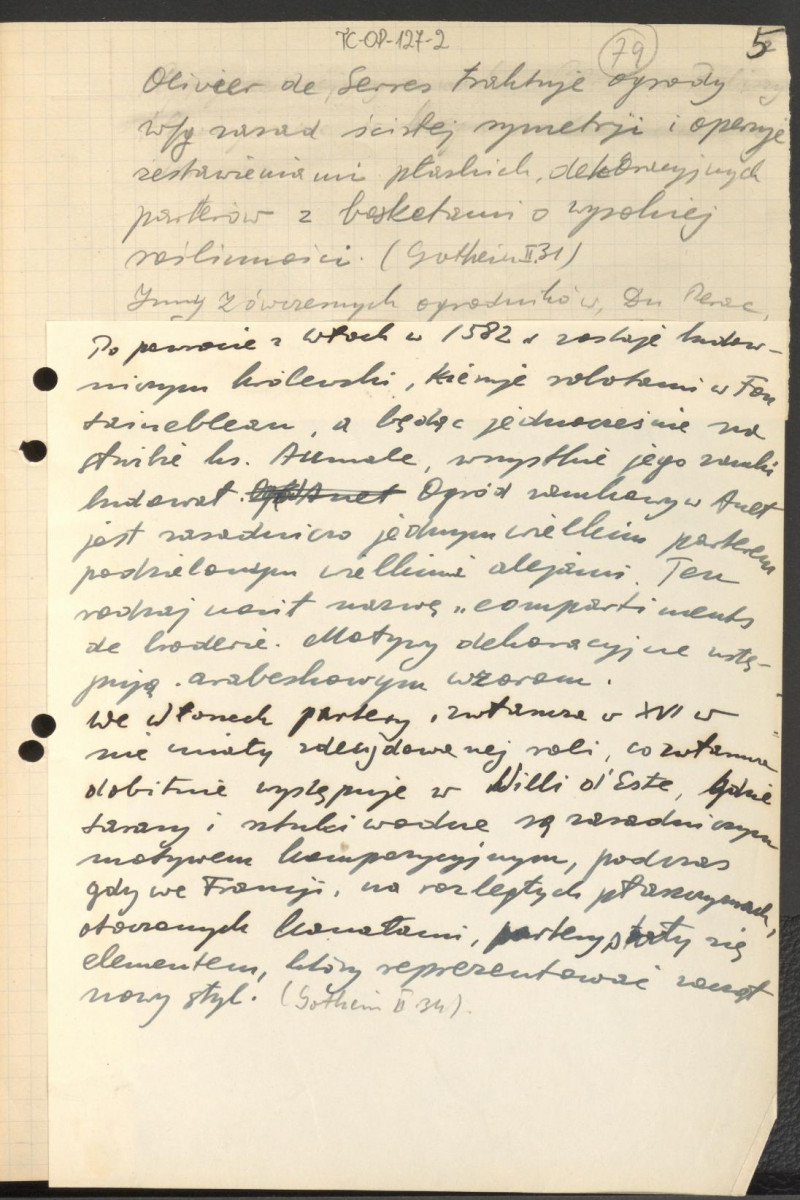 TC-OP-127-2
79
5
Olivier de Serres traktuje ogrody
w/g zasad ścisłej symetrji i operuje
zestawieniami płaskich, dekoracyjnych
parterów z bosketami o wysokiej
roślinności. (Gothein II.31)
Inny z ówczesnych ogrodników, Du Perac,
Po powrocie z Włoch w 1582 r zostaje budow-
niczym królewski, kieruje robotami w Fon
tainebleau, a będąc jednocześnie na
służbie ks. Aumale, wszystkie jego zamki
budował. Ogród zamkowy w Anet
jest zasadniczo jednym wielkim parterem
podzielonym wielkimi alejami. Ten
rodzaj nosił nazwę „compartiments
de broderie. Motywy dekoracyjne ustę-
pują arabeskowym wzorom.
We Włoszech partery, zwłaszcza w XVI w
nie miały zdecydowanej roli, co zwłaszcza
dobitnie występuje w Villi d'Este, gdzie
tarasy i sztuki wodne są zasadniczym
motywem kompozycyjnym, podczas
gdy we Francji, na rozległych płaszczyznach,
otoczonych kanałami, partery stały się
elementem, który reprezentować zaczął
nowy styl. (Gothein II 34).